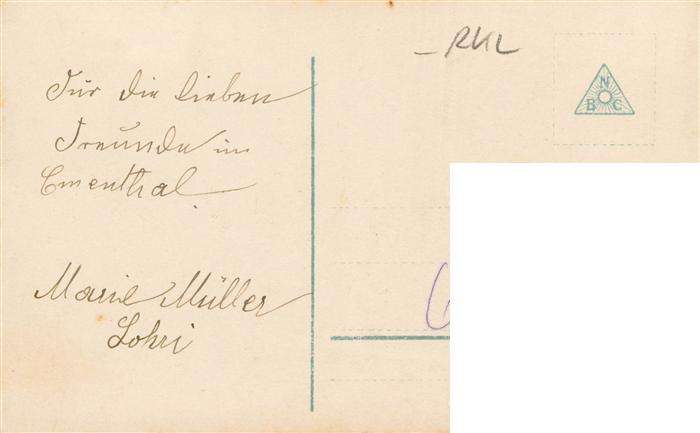 Für die lieben
Freunde im
Ementhal
Marie Müller
Lohri
RKL
N
B C